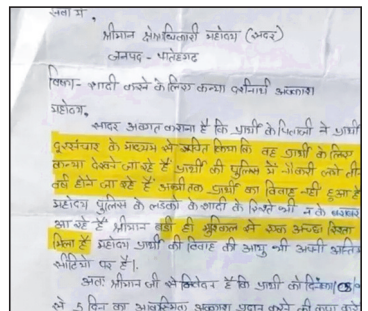 सेवा में,
श्रीमान क्षेत्राधिकारी महोदय (सदर)
जनपद - फतेहगढ़
विषय- शादी करने के लिए कन्या दर्शनार्थ अवकाश
महोदय,
सादर अवगत कराना है कि प्रार्थी के पिताजी ने प्रार्थी
दूरसंचार के माध्यम से सूचित किया कि वह प्रार्थी के लिए
कन्या देखने जा रहे हैं प्रार्थी की पुलिस में नौकरी लगे तीन
वर्ष होने जा रहे हैं अभी तक प्रार्थी का विवाह नहीं हुआ है
महोदय पुलिस के लड़कों के शादी के रिश्ते भी न के बराबर
आ रहे हैं श्रीमान बड़ी ही मुश्किल से एक अच्छा रिश्ता
मिला है महोदय प्रार्थी की विवाह की आयु भी अपनी अन्तिम
सीढियों पर है।
अतः श्रीमान जी से निवेदन है कि प्रार्थी को दिनांक
से 5 दिन का आकस्मिक अवकाश प्रदान करने की कृपा करें